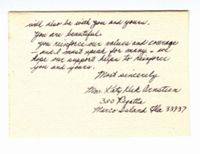 will also be with you and yours.
You are beautiful.
You reinforce our values and courage
- and I must speak for many - we
hope our support helps to reinforce
you and yours.
Most sincerely
Mrs.
303 Regatta
Marco Island Fla 33937